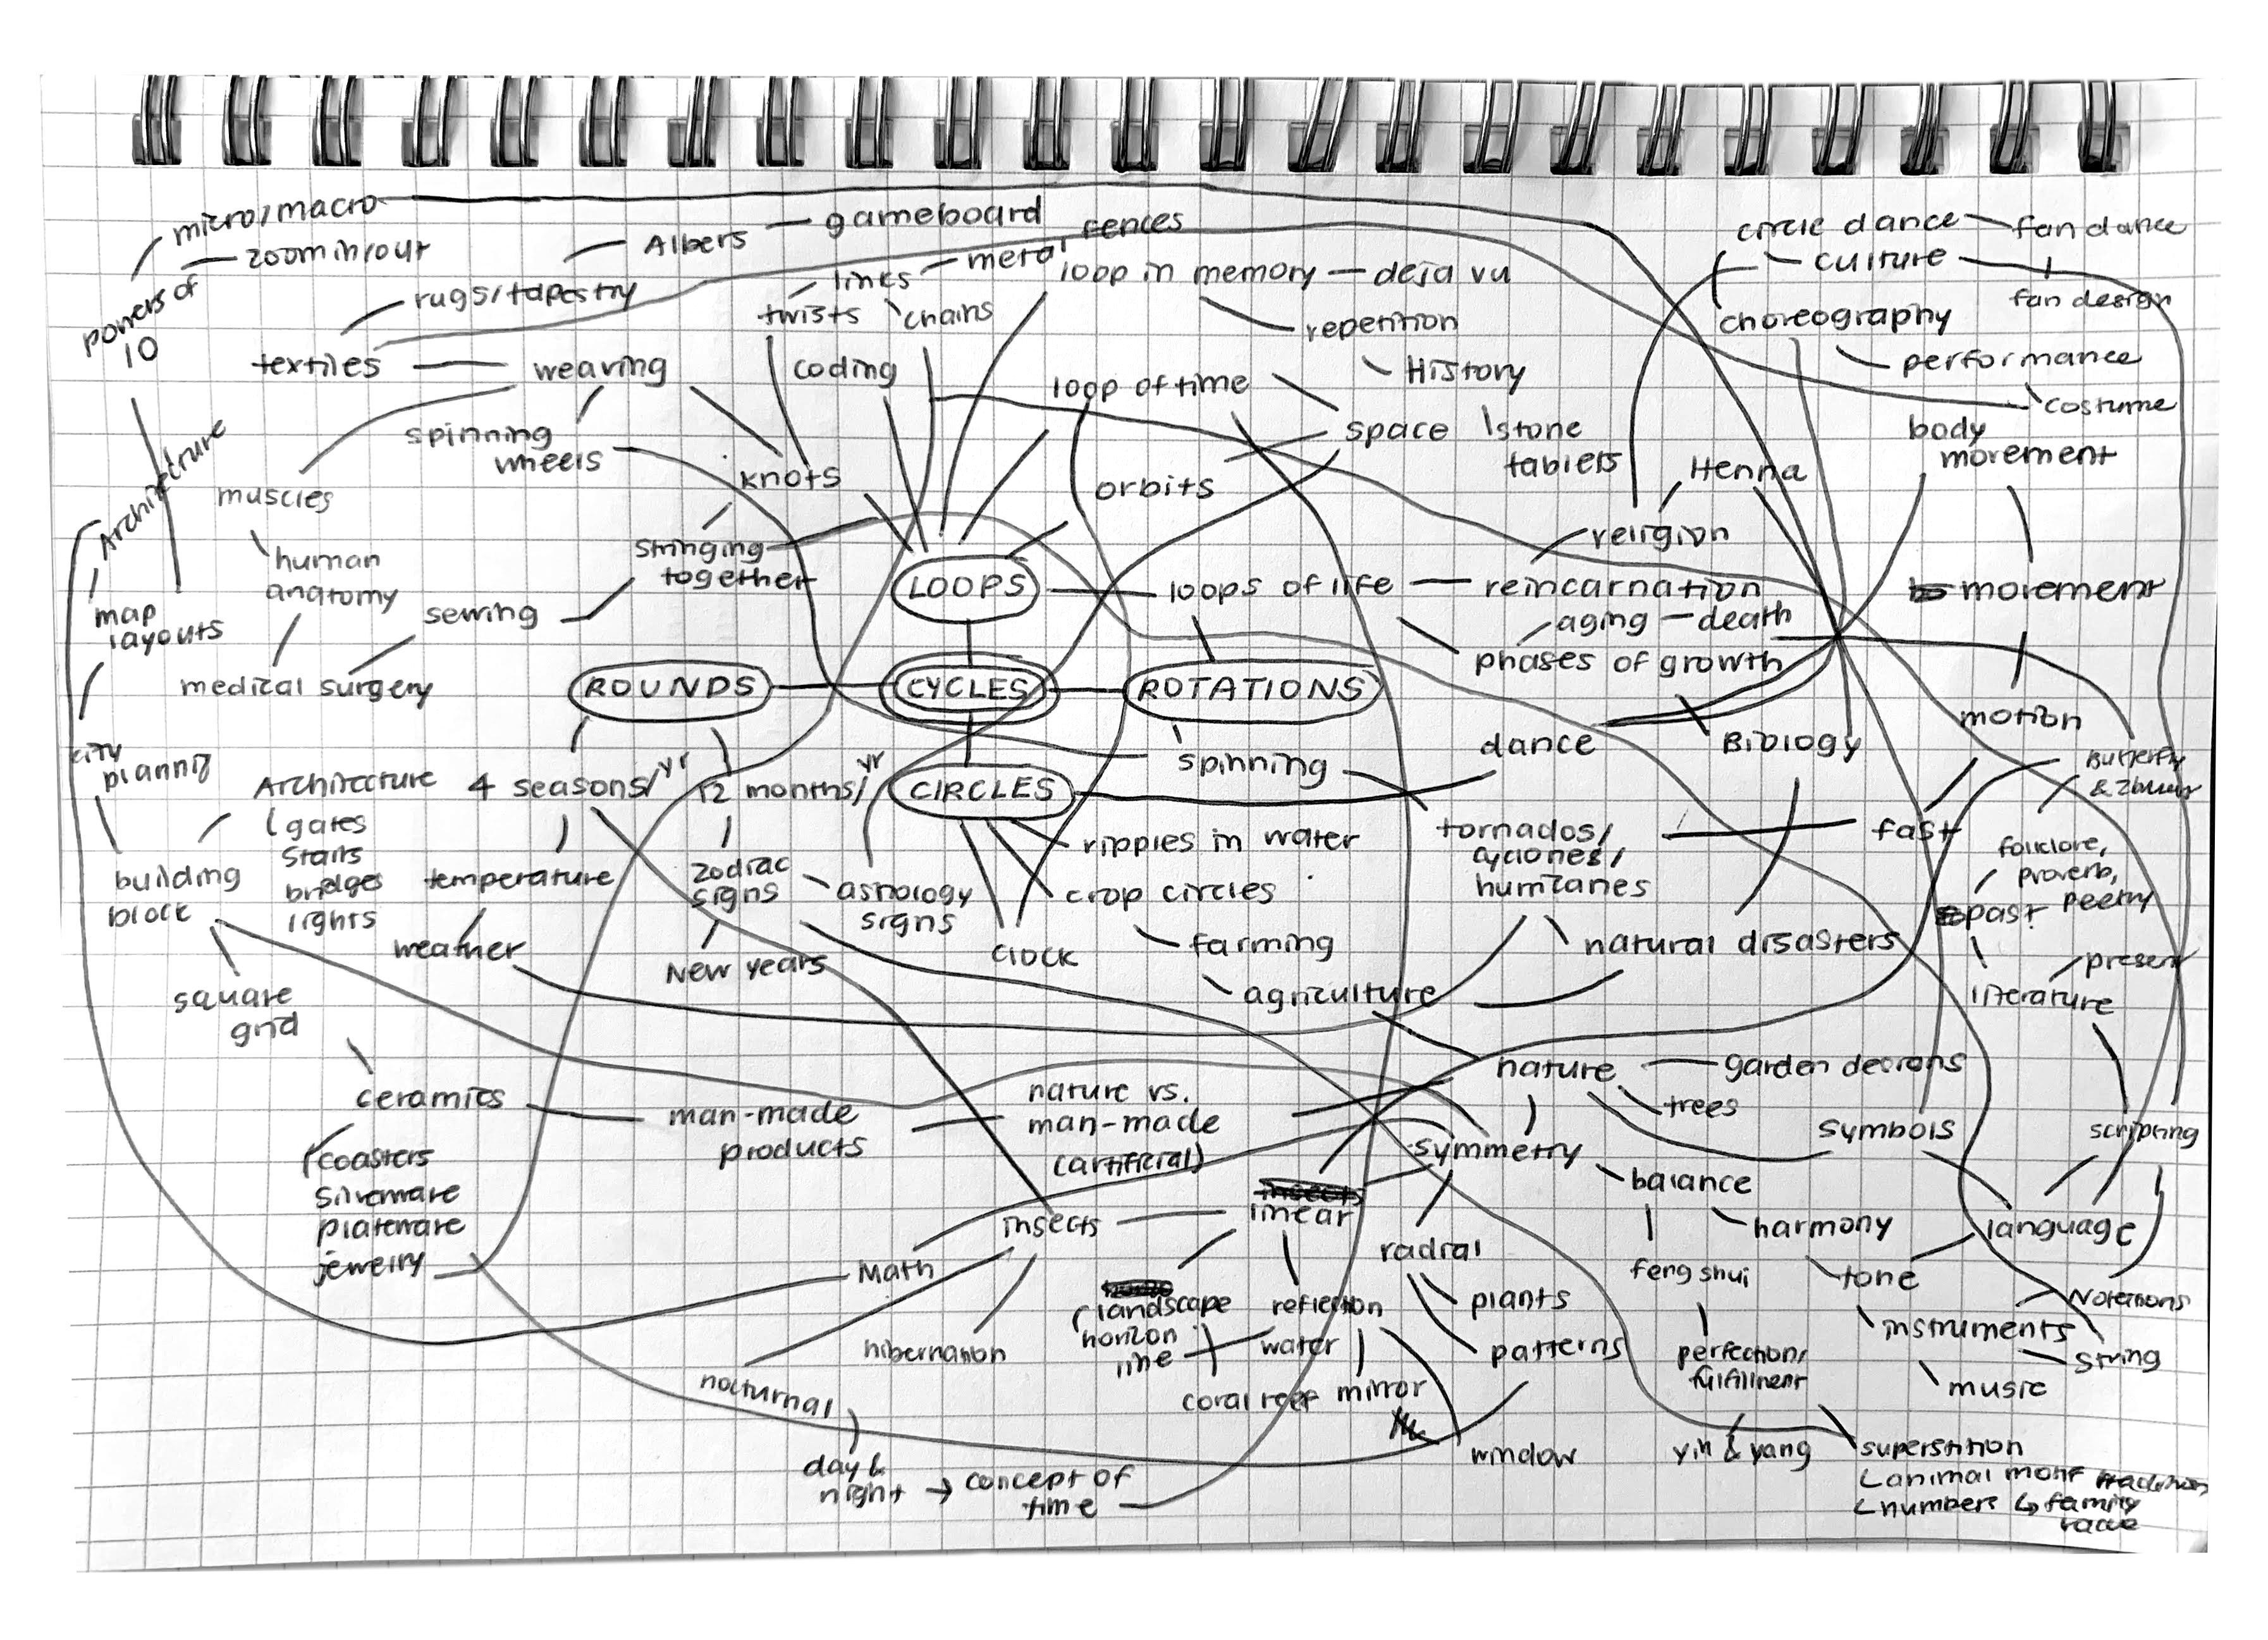 micro/macro
zoom in/out
powers of
10
Albers
gameboard
rugs/tapestry
textiles
weaving
links
metal fences
twists
chains
coding
loop in memory
deja vu
repetition
History
stone
tablets
loop of time
space
orbits
circle dance
fan dance
culture
fan design
choreography
performance
costume
body
movement
movement
motion
fast
Henna
religion
Architecture
map
layouts
city
building
block
square
grid
muscles
human
anatomy
medical surgery
sewing
spinning
wheels
knots
stringing
together
LOOPS
loops of life
reincarnation
aging
death
phases of growth
Biology
ROUNDS
CYCLES
ROTATIONS
CIRCLES
spinning
dance
Architecture
gates
stairs
bridges
lights
4 seasons/yr
12 months/yr
temperature
weather
zodiac
signs
New years
astrology
signs
clock
ripples in water
crop circles
farming
agriculture
tornados/
cyclones/
hurricanes
natural disasters
Butterfly
folklore,
proverb,
past
present
literature
scripting
language
Notations
string
ceramics
coasters
silverware
plateware
jewelry
man-made
products
nature vs.
man-made
(artificial)
nature
trees
symbols
symmetry
balance
harmony
tone
instruments
music
feng shui
perfection/
fulfillment
yin & yang
superstition
animal motif
numbers
family
insects
linear
radial
plants
patterns
Math
hibernation
nocturnal
day &
night
concept of
time
landscape
horizon
line
reflection
water
coral reef
mirror
window